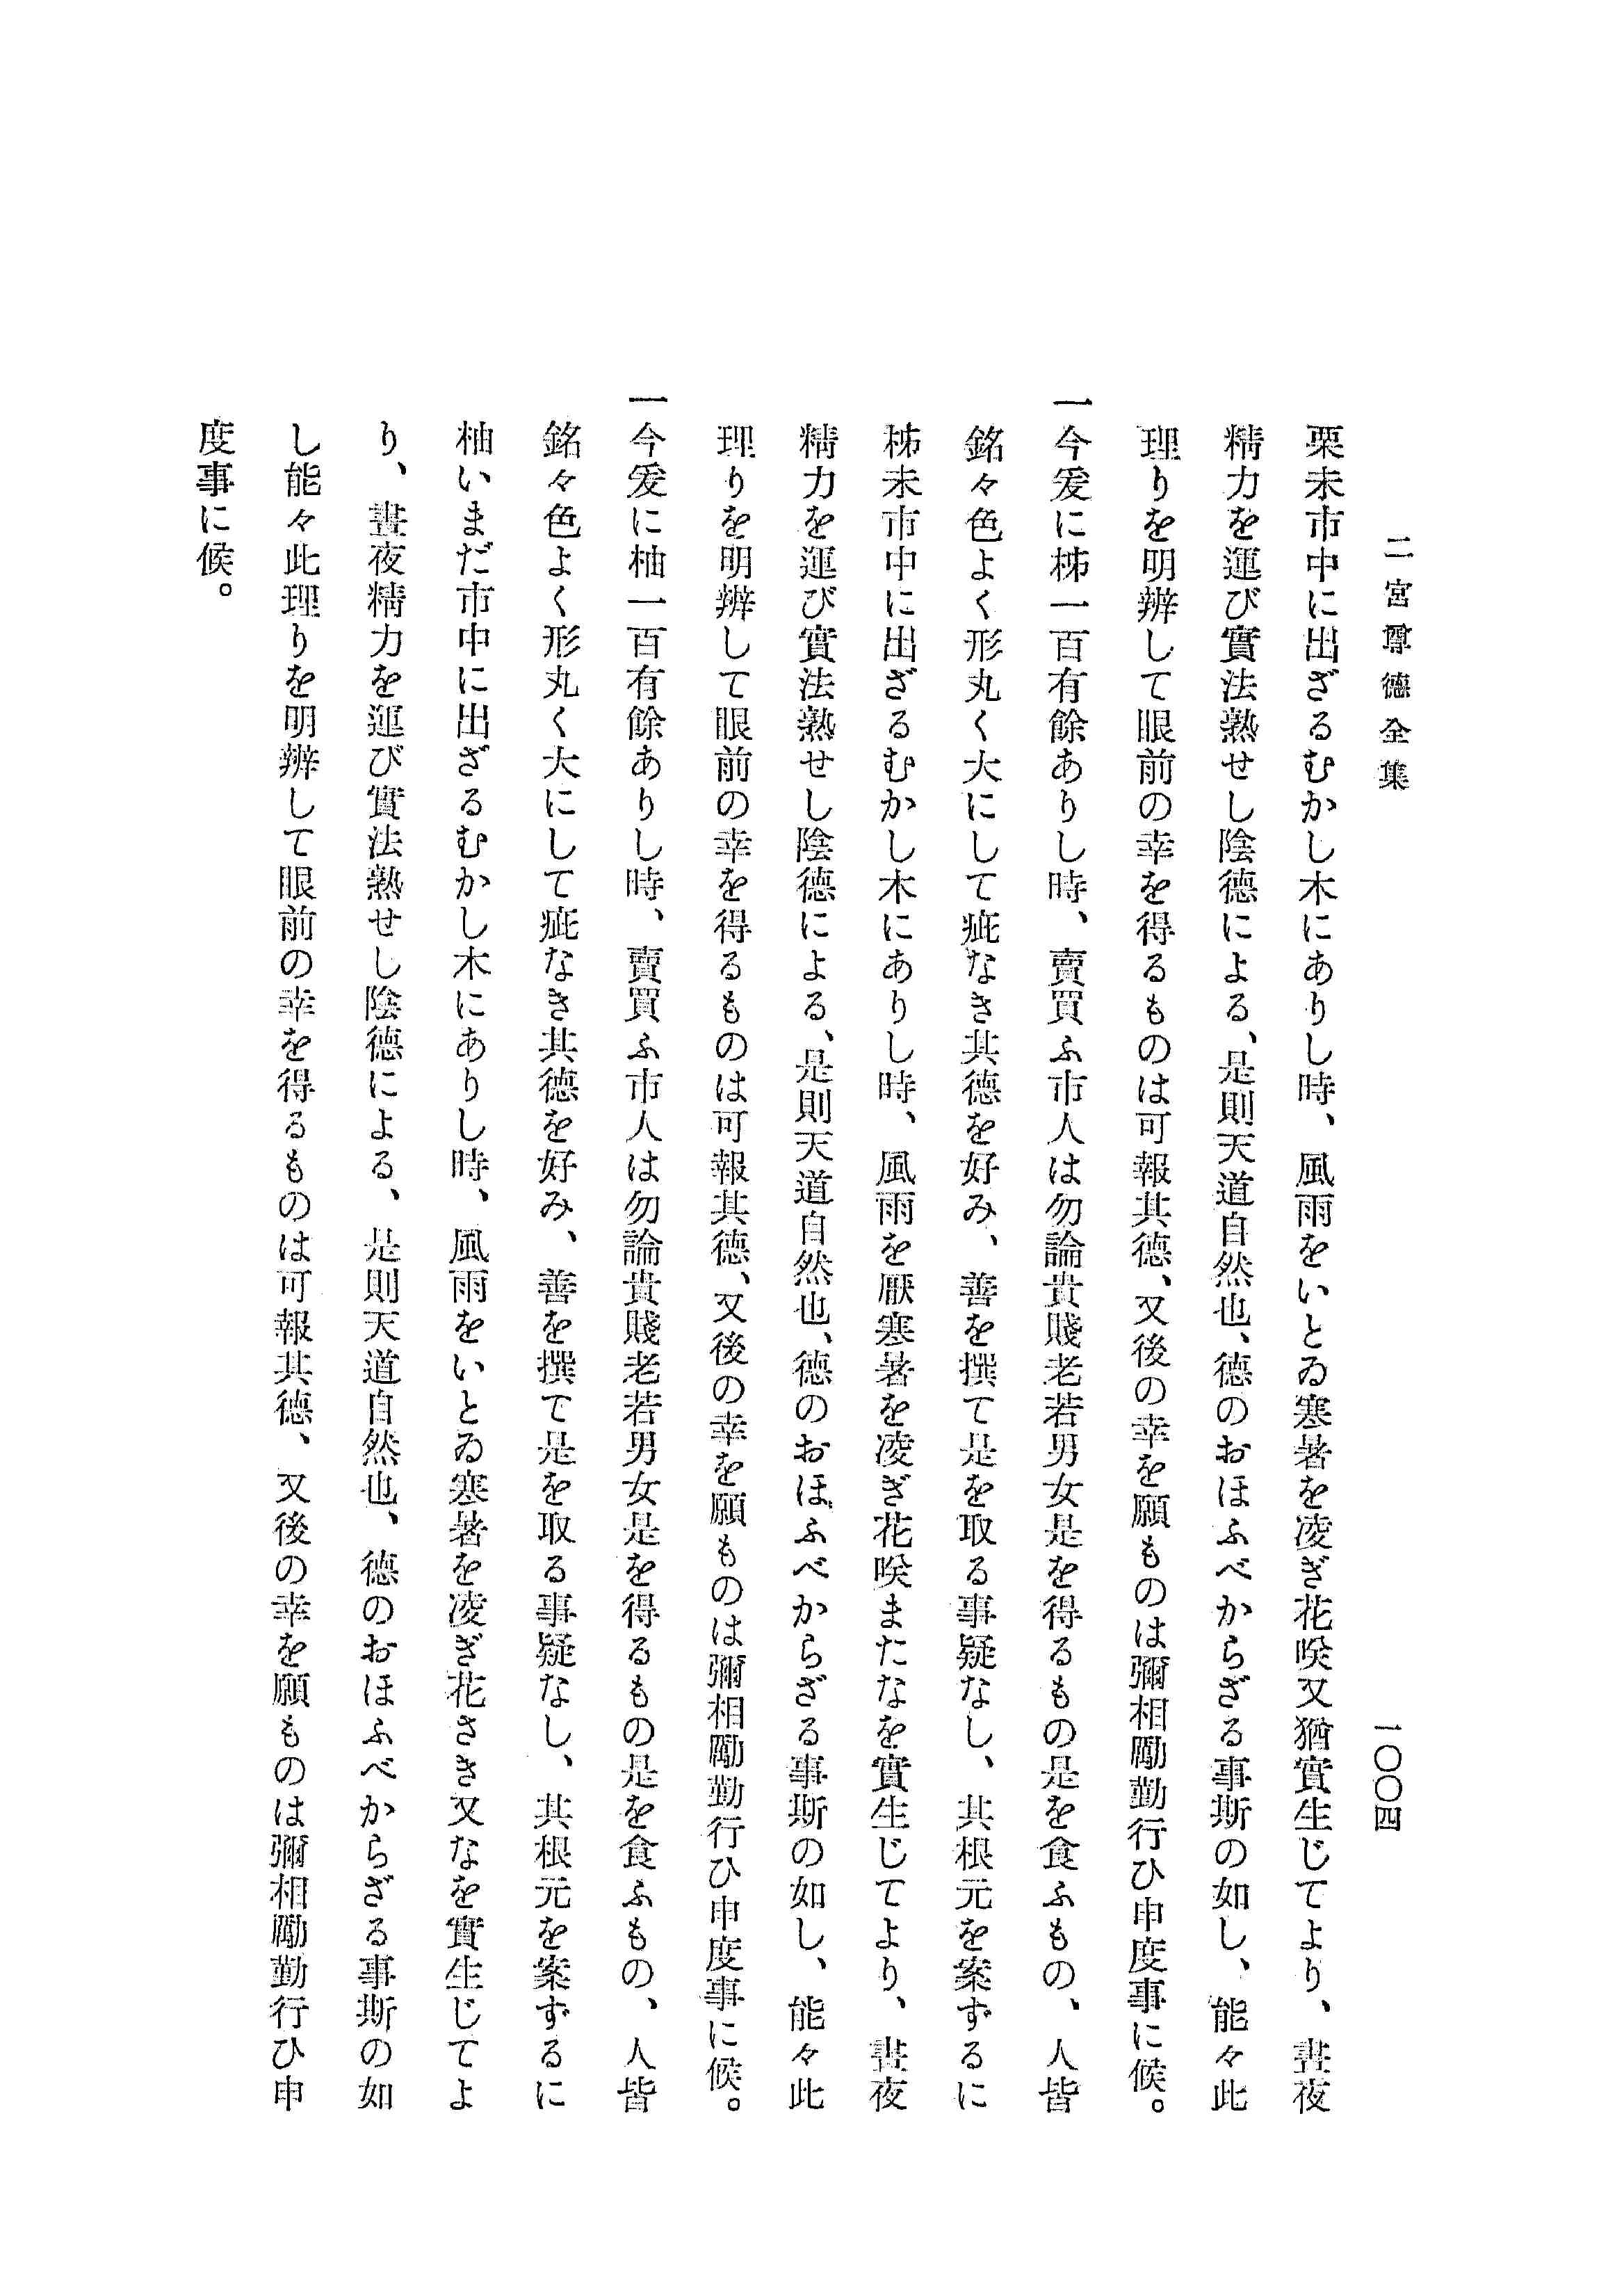 二宮尊德全集
一〇〇四
栗未市中に出ざるむかし木にありし時、風雨をいとゐ寒暑を凌ぎ花咲又猶實生じてより、晝夜
精力を運び實法熟せし陰德による、是則天道自然也、德のおほふべからざる事斯の如し、能々此
理りを明辨して眼前の幸を得るものは可報其德、又後の幸を願ものは彌相勵勤行ひ申度事に候。
一今爰に柹一百有餘ありし時、賣買ふ市人は勿論貴賤老若男女是を得るもの是を食ふもの、人皆
銘々色よく形丸く大にして疵なき其德を好み、善を撰て是を取る事疑なし、其根元を案ずるに
柹未市中に出ざるむかし木にありし時、風雨を厭寒暑を凌ぎ花咲またなを實生じてより、晝夜
精力を運び實法熟せし陰德による、是則天道自然也、德のおほふべからざる事斯の如し、能々此
理りを明辨して眼前の幸を得るものは可報其德、又後の幸を願ものは彌相勵勤行ひ申度事に候。
一今爰に柚一百有餘ありし時、賣買ふ市人は勿論貴賤老若男女是を得るもの是を食ふもの、人皆
銘々色よく形丸く大にして疵なき其德を好み、善を撰て是を取る事疑なし、其根元を案ずるに
柚いまだ市中に出ざるむかし木にありし時、風雨をいとゐ寒暑を凌ぎ花さき又なを實生じてよ
り、晝夜精力を運び實法熟せし陰德による、是則天道自然也、德のおほふべからざる事斯の如
し能々此理りを明辨して眼前の幸を得るものは可報其德、又後の幸を願ものは彌相勵勤行ひ申
度事に候。